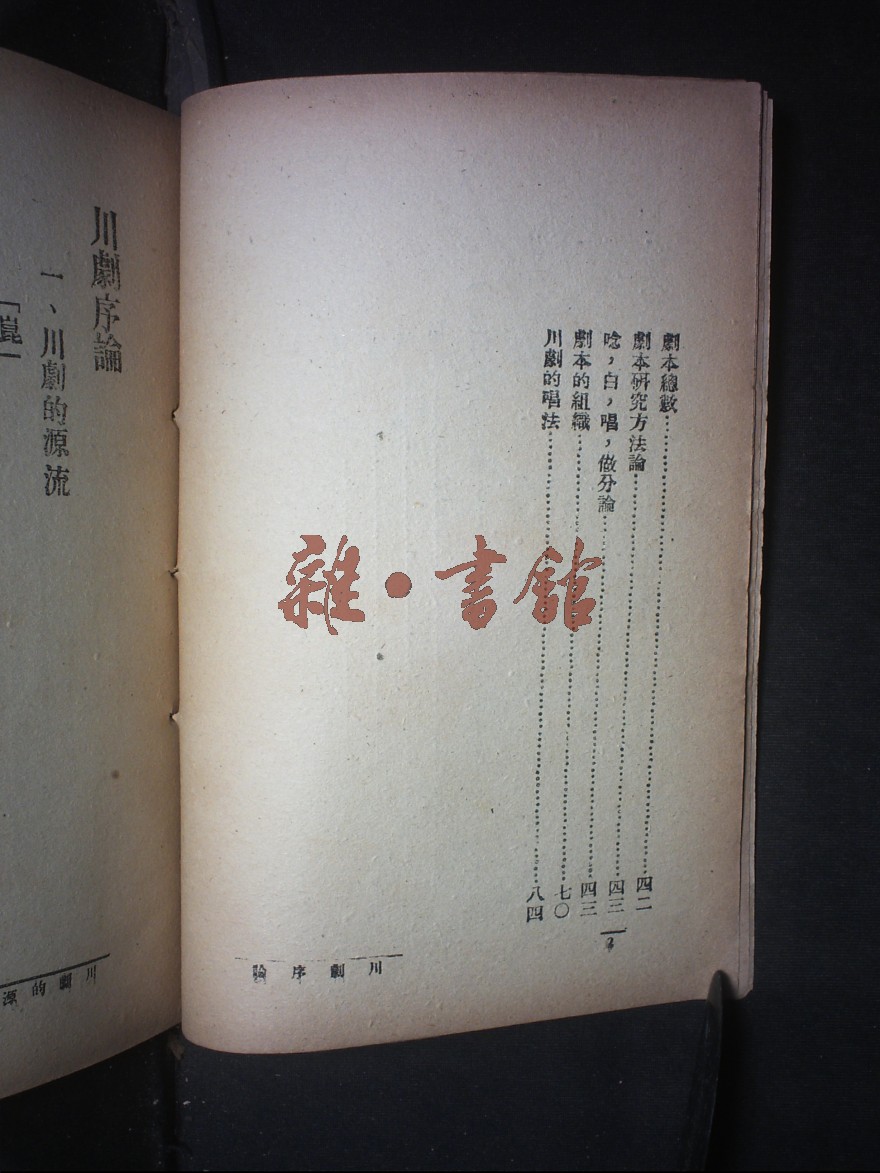 劇本總數……四二
劇本研究方法論……四三
唸，白，唱，做分論……四三
劇本的組織……七〇
川劇的唱法……八四
2
川劇序論
川劇序論
一、川劇的源流
「崑」
川劇的源
雜·書館